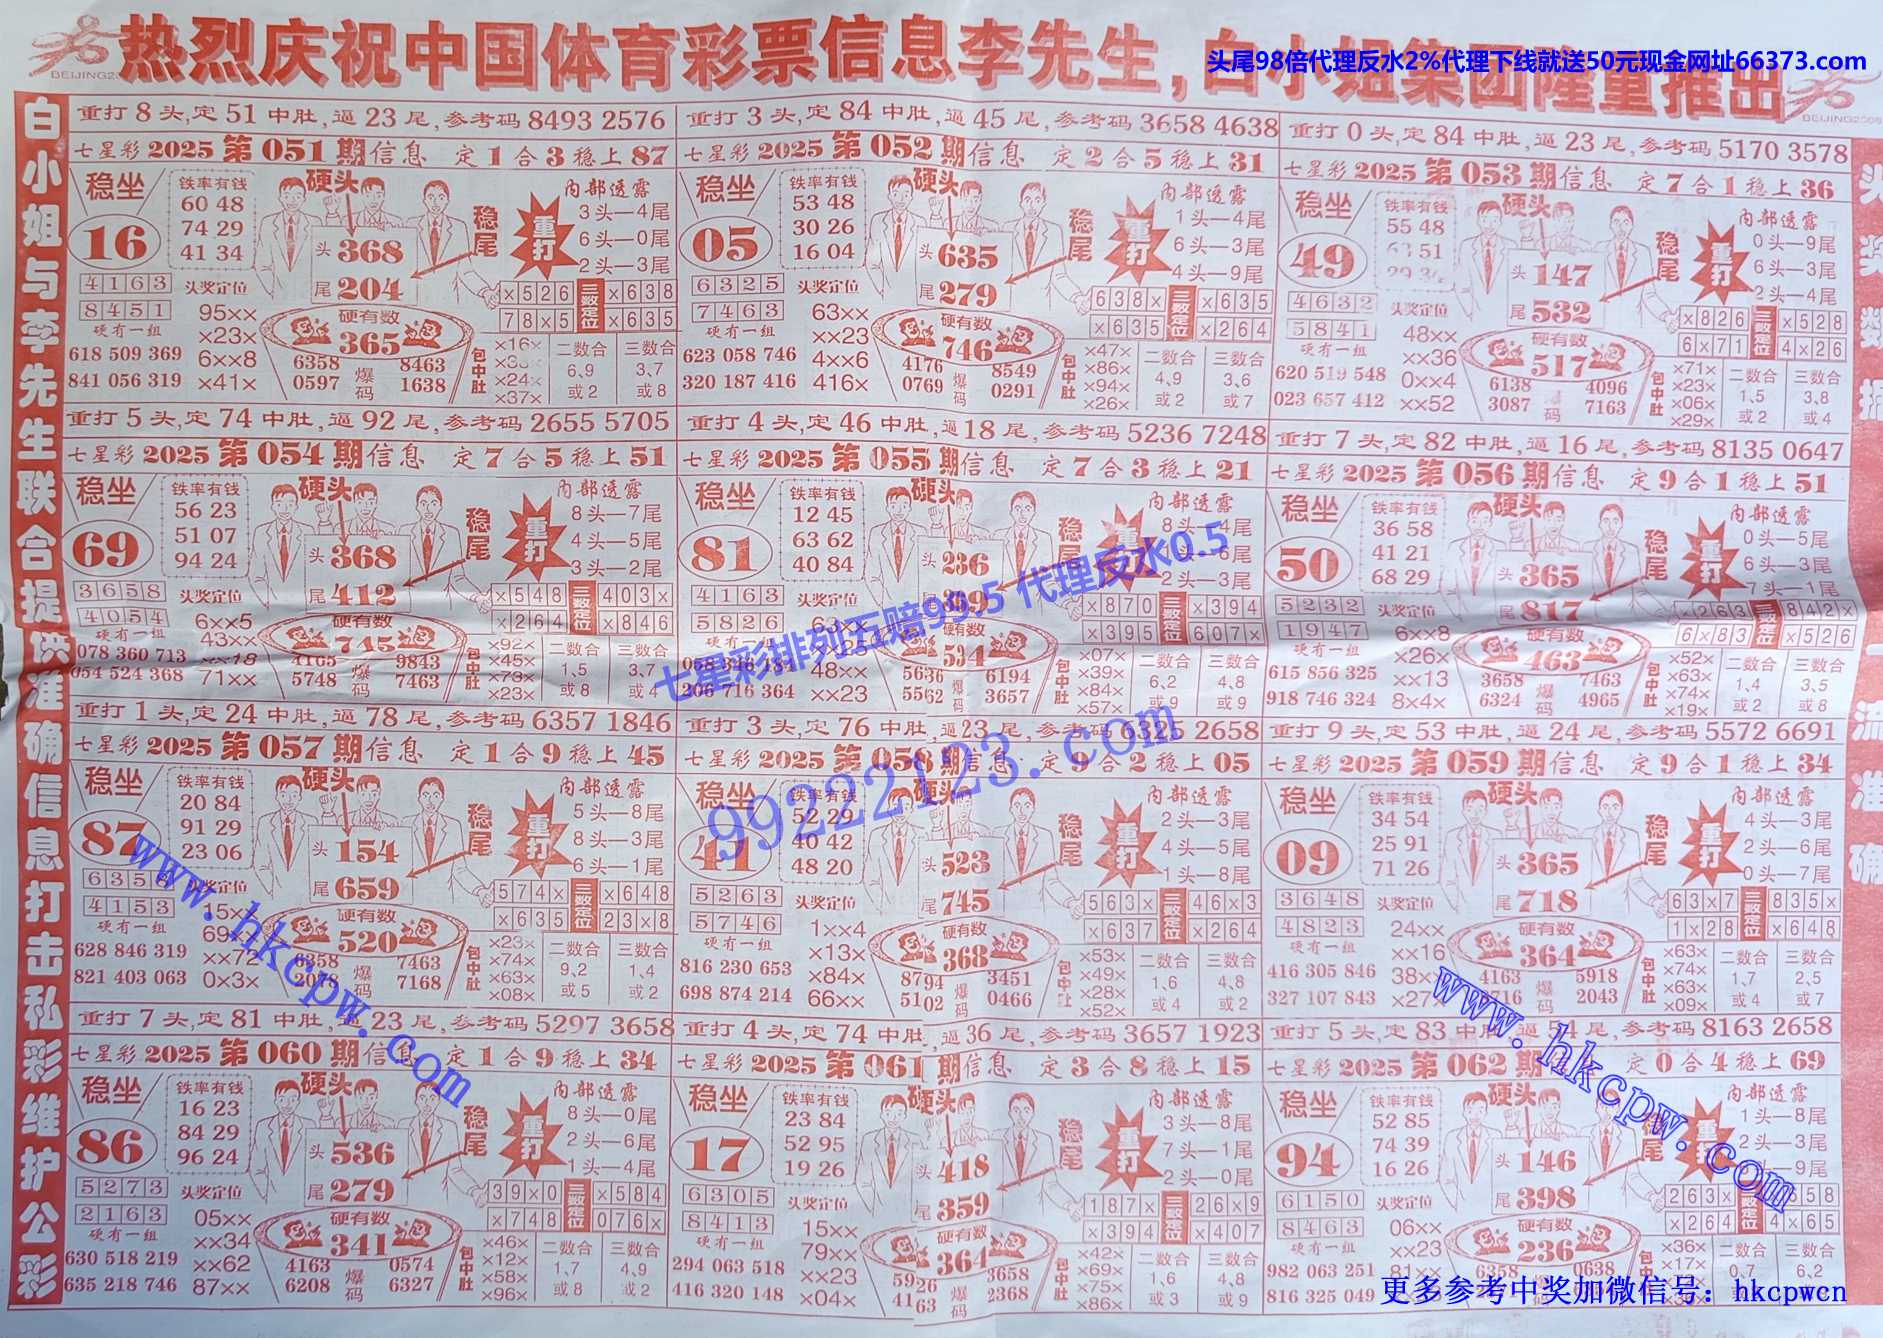 热烈庆祝中国体育彩票信息李先生,白小姐集团隆重推出
头尾98倍代理反水2%代理下线就送50元现金网址66373.com
白小姐与李先生联合提供准确信息打击私彩维护公彩
重打8头,定51中肚,逼23尾,参考码8493 2576
七星彩2025第051期信息 定1合3稳上87
稳坐 16
铁率有钱
60 48
74 29
41 34
硬头
头368
尾204
稳尾
重打
内部透露
3头—4尾
6头—0尾
2头—3尾
4163
8451
硬有一组
618 509 369
841 056 319
头奖定位
95××
×23×
6××8
×41×
硬有数
365
6358 8463
0597 爆码 1638
×526 三数定位 ×638
78×5 ×635
包中肚
×16×
×24×
×37×
二数合
6,9
或2
三数合
3,7
或8
重打3头,定84中肚,逼45尾,参考码3658 4638
七星彩2025第052期信息 定2合5稳上31
稳坐 05
铁率有钱
53 48
30 26
16 04
硬头
头635
尾279
稳尾
重打
内部透露
1头—4尾
6头—3尾
4头—9尾
6325
7463
硬有一组
623 058 746
320 187 416
头奖定位
63××
××23
4××6
416×
硬有数
746
4176 8549
0769 爆码 0291
638× 三数定位 ×635
×635 ×264
包中肚
×47×
×86×
×94×
×26×
二数合
4,9
或2
三数合
3,6
或7
重打0头,定84中肚,逼23尾,参考码5170 3578
七星彩2025第053期信息 定7合1稳上36
稳坐 49
铁率有钱
55 48
硬头
头147
尾532
稳尾
重打
内部透露
0头—9尾
6头—3尾
2头—4尾
4632
5841
硬有一组
620 519 548
023 657 412
头奖定位
48××
××36
0××4
××52
硬有数
517
6138 4096
3087 码 7163
×826 三数定位 ×528
6×71 4×26
包中肚
×71×
×23×
×06×
×29×
二数合
1,5
或2
三数合
3,8
或4
重打5头,定74中肚,逼92尾,参考码2655 5705
七星彩2025第054期信息 定7合5稳上51
稳坐 69
铁率有钱
56 23
51 07
94 24
硬头
头368
尾412
稳尾
重打
内部透露
8头—7尾
4头—5尾
3头—2尾
3658
4054
硬有一组
078 360 713
054 524 368
头奖定位
6××5
43××
71××
硬有数
745
4165 9843
5748 爆码 7463
×548 三数定位 403×
×264 ×846
包中肚
×92×
×45×
×73×
×23×
二数合
1,5
或8
三数合
3,7
或4
重打4头,定46中肚,逼18尾,参考码5236 7248
七星彩2025第055期信息 定7合3稳上21
稳坐 81
铁率有钱
12 45
63 62
40 84
硬头
头236
内部透露
2头—3尾
4163
5826
硬有一组
206 716 364
头奖定位
48××
××23
硬有数
534
5636 6194
5562 爆码 3657
×870 三数定位 ×394
×395 607×
包中肚
×07×
×39×
×84×
×57×
二数合
6,2
或9
三数合
4,8
或9
七星彩排列五赔99.5 代理反水0.5
重打7头,定82中肚,逼16尾,参考码8135 0647
七星彩2025第056期信息 定9合1稳上51
稳坐 50
铁率有钱
36 58
41 21
68 29
硬头
头365
尾817
稳尾
重打
内部透露
0头—5尾
6头—3尾
7头—1尾
5232
1947
硬有一组
615 856 325
918 746 324
头奖定位
6××8
×26×
××13
8×4×
硬有数
463
3658 7463
6324 爆码 4965
×263 三数定位 842×
6×83 ×526
包中肚
×52×
×63×
×74×
×19×
二数合
1,4
或2
三数合
3,5
或8
重打1头,定24中肚,逼78尾,参考码6357 1846
七星彩2025第057期信息 定1合9稳上45
稳坐 87
铁率有钱
20 84
91 29
23 06
硬头
头154
尾659
稳尾
重打
内部透露
5头—8尾
8头—3尾
6头—1尾
4153
硬有一组
628 846 319
821 403 063
头奖定位
××72
0×3×
硬有数
520
6358 7463
爆码 7168
574× 三数定位 ×648
×635 23×8
包中肚
×23×
×74×
×63×
×08×
二数合
9,2
或5
三数合
1,4
或2
重打3头,定76中肚,逼23尾,参考码6325 2658
七星彩2025第058期信息 定9合2稳上05
稳坐 41
铁率有钱
52 29
40 42
48 20
硬头
头523
尾745
稳尾
重打
内部透露
2头—3尾
4头—5尾
1头—8尾
5263
5746
硬有一组
816 230 653
698 874 214
头奖定位
1××4
×13×
×84×
66××
硬有数
368
8794 3451
5102 爆码 0466
563× 三数定位 46×3
×637 ×264
包中肚
×53×
×49×
×28×
×52×
二数合
1,6
或4
三数合
4,8
或2
99222123.com
重打9头,定53中肚,逼24尾,参考码5572 6691
七星彩2025第059期信息 定9合1稳上34
稳坐 09
铁率有钱
34 54
25 91
71 26
硬头
头365
尾718
稳尾
重打
内部透露
4头—3尾
2头—6尾
0头—7尾
3648
4823
硬有一组
416 305 846
327 107 843
头奖定位
24××
××16
38××
×27×
硬有数
364
4163 5918
爆码 2043
63×7 三数定位 835×
1×28 ×648
包中肚
×63×
×74×
×63×
×09×
二数合
1,7
或4
三数合
2,5
或7
www.hkcpw.com
重打7头,定81中肚,逼23尾,参考码5297 3658
七星彩2025第060期信息 定1合9稳上34
稳坐 86
铁率有钱
16 23
84 29
96 24
硬头
头536
尾279
稳尾
重打
内部透露
8头—0尾
2头—6尾
1头—4尾
5273
2163
硬有一组
630 518 219
635 218 746
头奖定位
05××
××34
××62
87××
硬有数
341
4163 0574
6208 爆码 6327
39×0 三数定位 ×584
×748 076×
包中肚
×46×
×12×
×58×
×96×
二数合
1,7
或8
三数合
4,9
或2
重打4头,定74中肚,逼36尾,参考码3657 1923
七星彩2025第061期信息 定3合8稳上15
稳坐 17
铁率有钱
23 84
52 95
19 26
硬头
头418
尾359
稳尾
重打
内部透露
3头—8尾
7头—1尾
2头—0尾
6305
8413
硬有一组
294 063 518
416 320 148
头奖定位
15××
79××
××23
×04×
硬有数
364
5926 3658
4163 爆码 2368
187× 三数定位 26×9
×394 ×407
包中肚
×42×
×69×
×75×
×86×
二数合
1,6
或3
三数合
4,8
或9
重打5头,定83中肚,逼54尾,参考码8163 2658
七星彩2025第062期 定0合4稳上69
稳坐 94
铁率有钱
52 85
74 39
16 26
硬头
头146
尾398
内部透露
1头—8尾
2头—3尾
6150
8463
硬有一组
982 063 251
816 325 049
头奖定位
06××
××23
81××
硬有数
236
6358 0638
263×
×264 4×65
包中肚
×36×
×17×
二数合
0,7
三数合
6,2
www.hkcpw.com
更多参考中奖加微信号：hkcpwcn